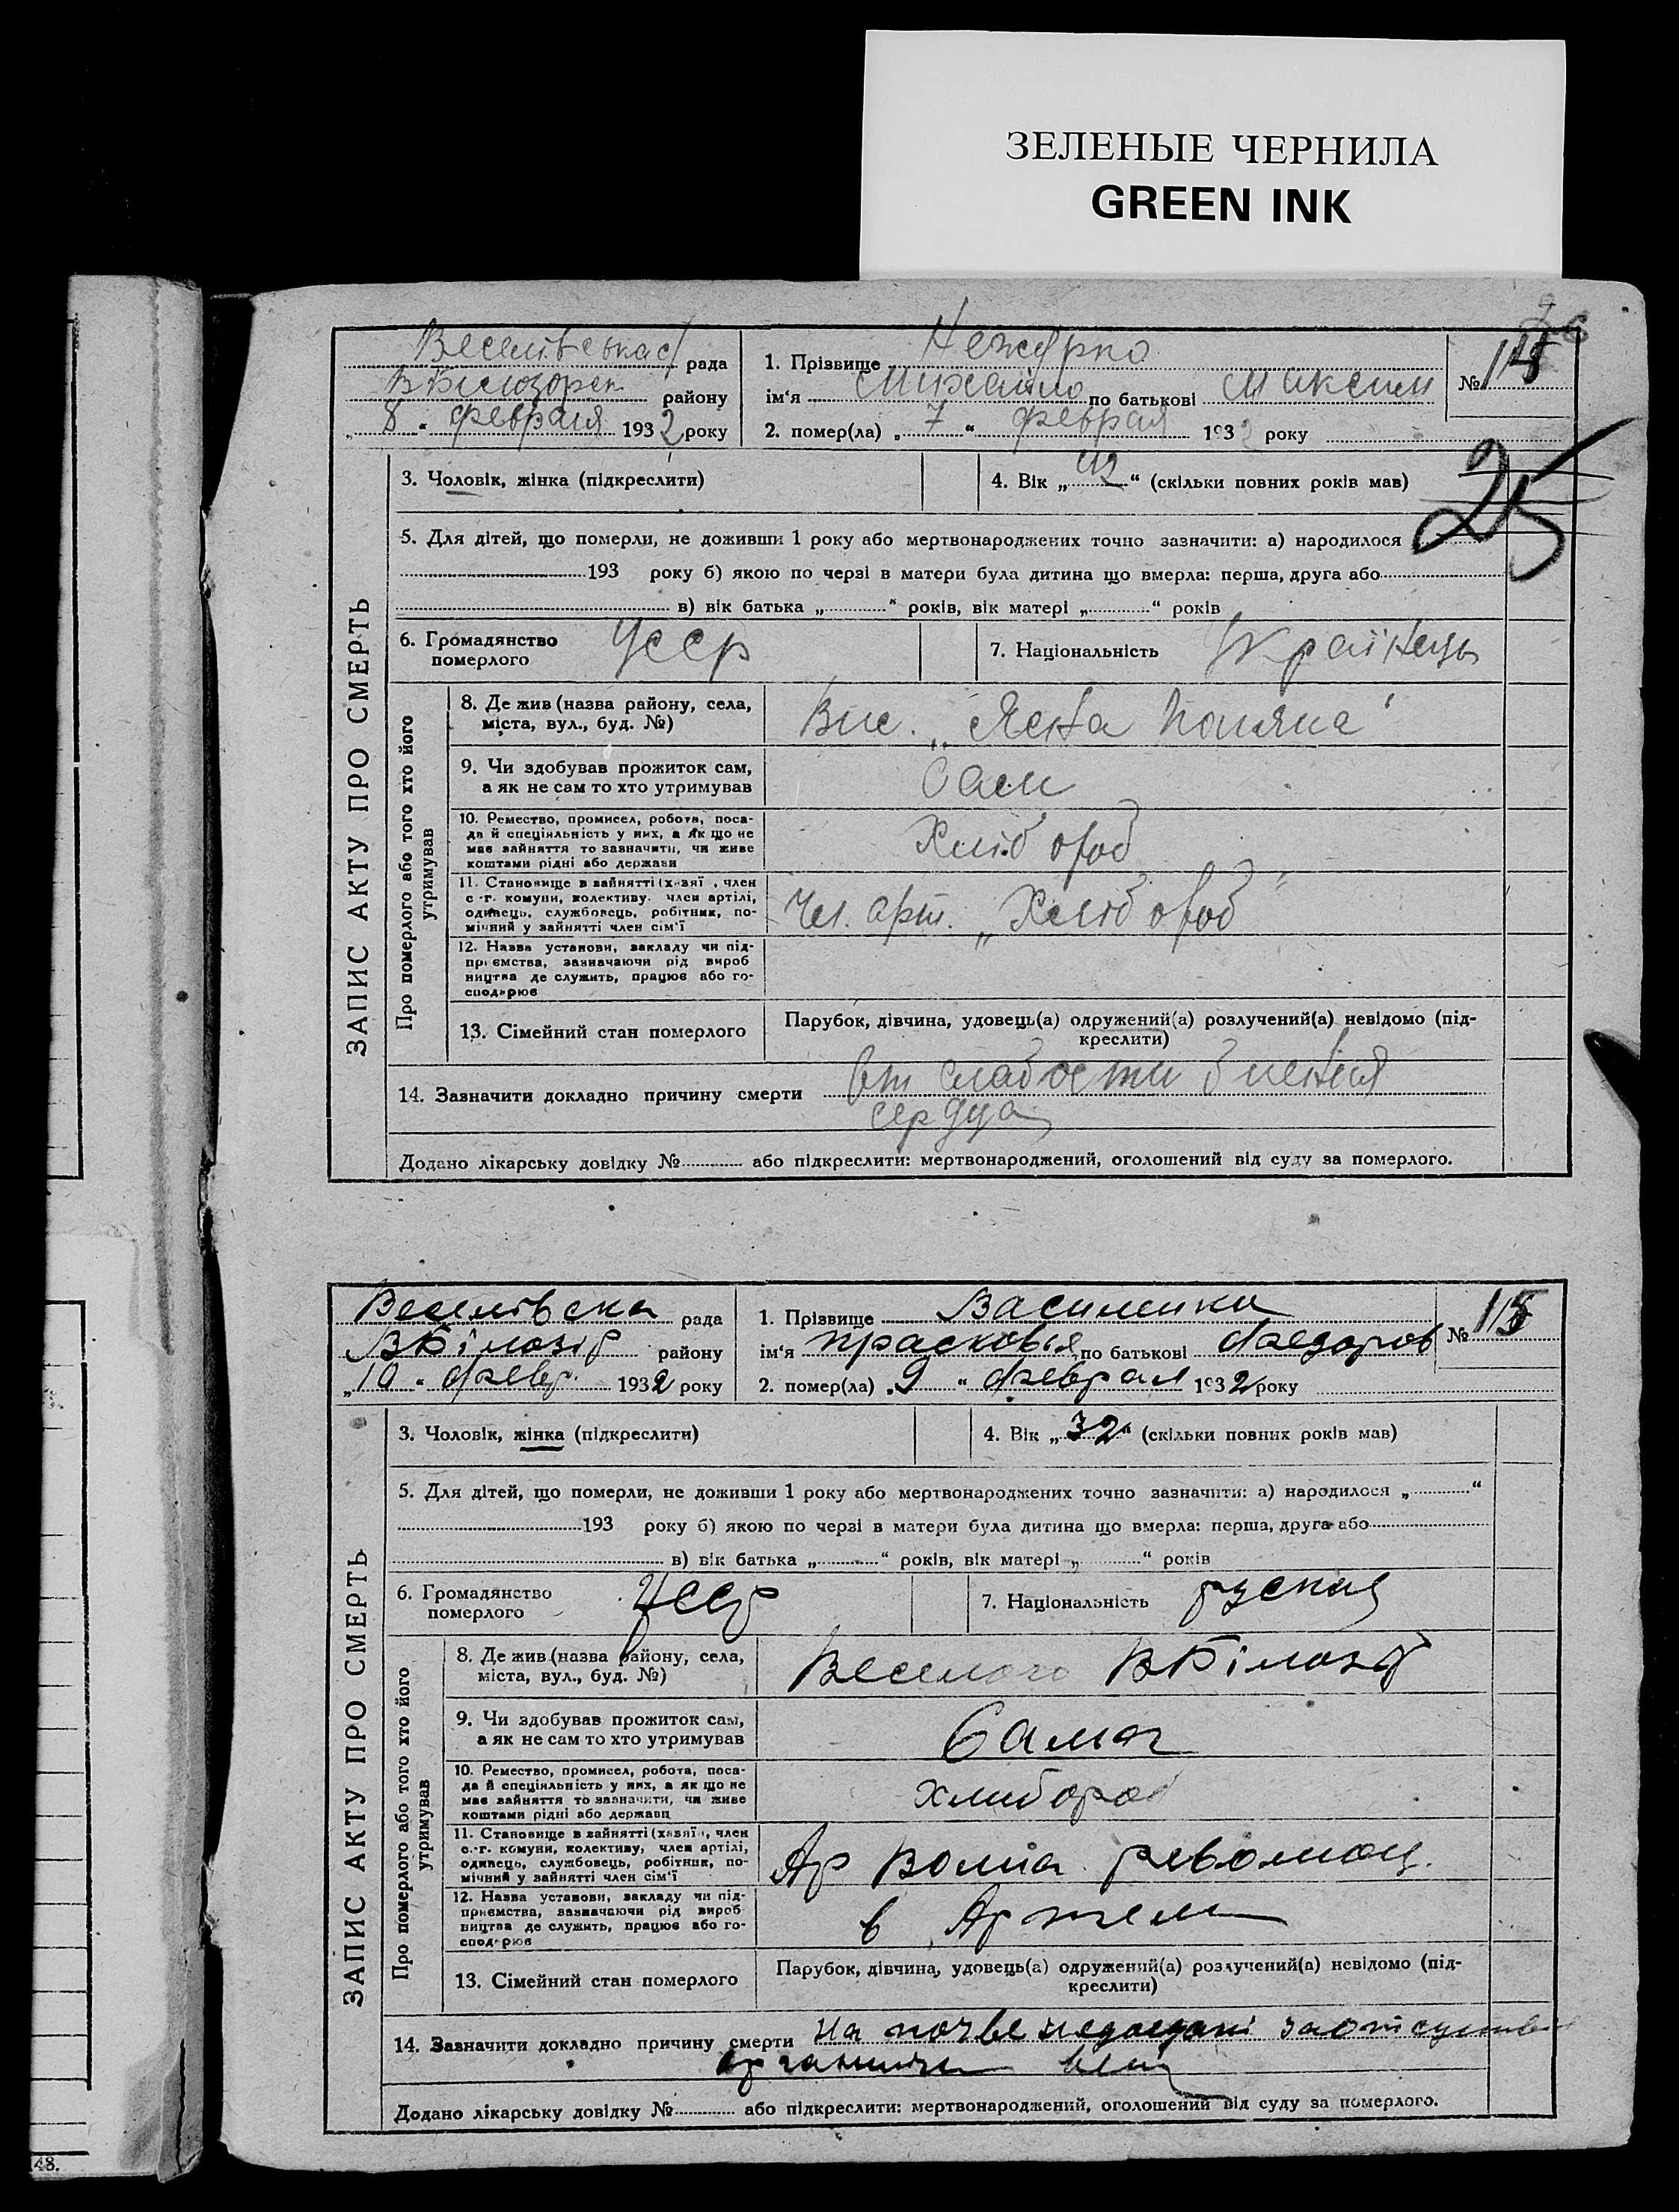 ЗЕЛЕНЫЕ ЧЕРНИЛА
GREEN INK
рада
В Білозорск району
„8“ февраля 1932 року
1. Прізвище
ім‘я Михайло по батькові Максим
2. помер(ла) „7“ февраля 1932 року
№
25
3. Чоловік, жінка (підкреслити)
4. Вік „42“ (скільки повних років мав)
5. Для дітей, що померли, не доживши 1 року або мертвонароджених точно зазначити: а) народилося
193 року б) якою по черзі в матери була дитина що вмерла: перша, друга або
в) вік батька „ “ років, вік матері „ “ років
6. Громадянство померлого Усср
7. Національність Українець
ЗАПИС АКТУ ПРО СМЕРТЬ
Про померлого або того хто його утримував
8. Де жив (назва району, села,
міста, вул., буд. №)
Вис. „Ясна Поляна“
9. Чи здобував прожиток сам,
а як не сам то хто утримував
Сам
10. Ремество, промисел, робота, поса-
да й спеціяльність у них, а як що не
має зайняття то зазначити, чи живе
коштами рідні або держави
Хлібороб
11. Становище в зайнятті (хазяї , член
с -г. комуни, колективу. член артілі,
одинець, службовець, робітник, по-
мічний у зайнятті член сім‘ї
Чл. арт. „Хлібороб“
12. Назва установи, закладу чи під-
приємства, зазначаючи рід вироб
ництва де служить, працює або го-
сподарює
13. Сімейний стан померлого
Парубок, дівчина, удовець(а) одружений(а) розлучений(а) невідомо (під-
креслити)
14. Зазначити докладно причину смерти От слабости биения
сердца
Додано лікарську довідку № або підкреслити: мертвонароджений, оголошений від суду за померлого.
Веселівска рада
ВБілозір району
„10“ февр. 1932 року
1. Прізвище Василенки
ім‘я Прасковья по батькові Федоров
2. помер(ла) „9“ феврал 1932 року
№
3. Чоловік, жінка (підкреслити)
4. Вік „32“ (скільки повних років мав)
5. Для дітей, що померли, не доживши 1 року або мертвонароджених точно зазначити: а) народилося „ “
193 року б) якою по черзі в матери була дитина що вмерла: перша, друга або
в) вік батька „ “ років, вік матері „ “ років
6. Громадянство померлого Усср
7. Національність руская
ЗАПИС АКТУ ПРО СМЕРТЬ
Про померлого або того хто його утримував
8. Де жив (назва району, села,
міста, вул., буд. №)
Веселого ВБілозір
9. Чи здобував прожиток сам,
а як не сам то хто утримував
Сама
10. Ремество, промисел, робота, поса-
да й спеціяльність у них, а як що не
має зайняття то зазначити, чи живе
коштами рідні або держави
хлибороб
11. Становище в зайнятті (хазяїн, член
с.-г. комуни, колективу, член артілі,
одинець, службовець, робітник, по-
мічний у зайнятті член сім‘ї
Ар Волна революц.
12. Назва установи, закладу чи під-
приємства, зазначаючи рід вироб
ництва де служить, працює або го-
сподарює
в Артели
13. Сімейний стан померлого
Парубок, дівчина, удовець(а) одружений(а) розлучений(а) невідомо (під-
креслити)
14. Зазначити докладно причину смерти На почве недоедані
Додано лікарську довідку № або підкреслити: мертвонароджений, оголошений від суду за померлого.
48.